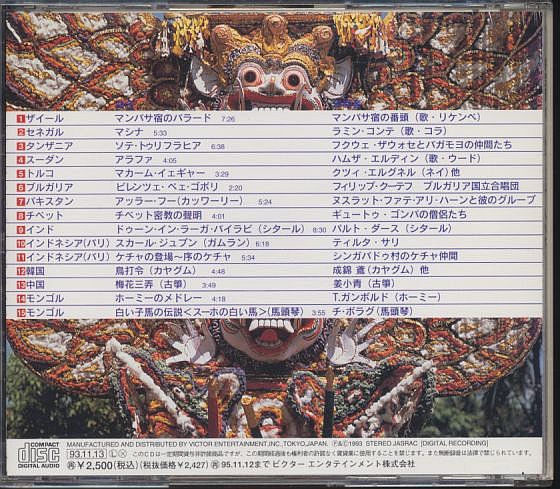 1 ザイール マンバサ宿のバラード 7:26 マンバサ宿の番頭（歌・リケンベ）
2 セネガル マシナ 5:33 ラミン・コンテ（歌・コラ）
3 タンザニア ソテ・トゥリフラヒア 6:38 フクウェ・ザウォセとバガモヨの仲間たち
4 スーダン アラファ 4:05 ハムザ・エルディン（歌・ウード）
5 トルコ マカーム・イェギャー 3:29 クツィ・エルグネル（ネイ）他
6 ブルガリア ピレンツェ・ペェ・ゴボリ 2:20 フィリップ・クーテフ ブルガリア国立合唱団
7 パキスタン アッラー・フー（カッワーリー） 5:24 ヌスラット・ファテ・アリ・ハーンと彼のグループ
8 チベット チベット密教の聲明 4:01 ギュートゥ・ゴンパの僧侶たち
9 インド ドゥーン・イン・ラーガ・バイラビ（シタール） 8:30 バルト・ダース（シタール）
10 インドネシア（バリ） スカール・ジュプン（ガムラン） 6:18 ティルタ・サリ
11 インドネシア（バリ） ケチャの登場〜序のケチャ 5:34 シンガパドゥ村のケチャ仲間
12 韓国 鳥打令（カヤグム） 4:48 成錦鳶（カヤグム）他
13 中国 梅花三弄（古箏） 3:49 姜小青（古箏）
14 モンゴル ホーミーのメドレー 4:18 T.ガンボルド（ホーミー）
15 モンゴル 白い子馬の伝説＜スーホの白い馬＞（馬頭琴） 3:55 チ・ボラグ（馬頭琴）
COMPACT disc DIGITAL AUDIO
MANUFACTURED AND DISTRIBUTED BY VICTOR ENTERTAINMENT, INC., TOKYO, JAPAN. Ⓟ&Ⓒ1993 STEREO JASRAC [DIGITAL RECORDING]
93.11.13 Ⓛ Ⓧ このCDは一定期間貸与非許諾商品ですが、この期間経過後も権利者の許諾なく賃貸業に使用することを禁じます。また無断複製は法律で禁じられています。
㊢￥2,500（税込）（税抜価格￥2,427） ㊢95.11.12まで ビクター エンタテインメント株式会社